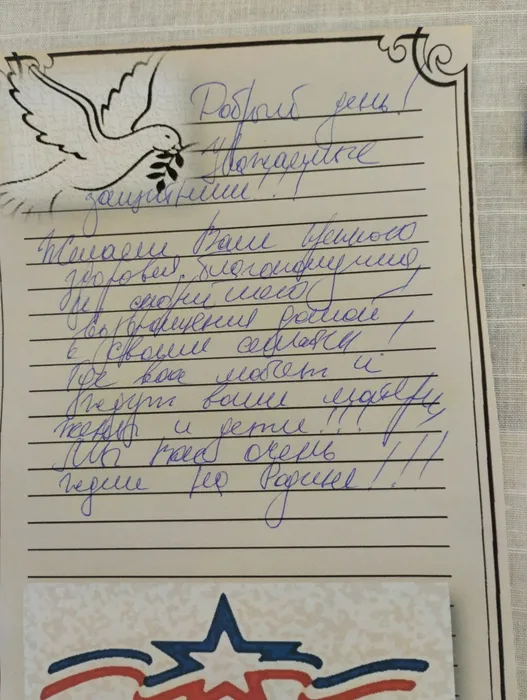 Добрый день!
Уважаемые
защитники!
Желаем Вам крепкого
здоровья, благополучия,
возвращения домой
к своим семьям!
Где вас любят и
ждут ваши матери,
жены и дети!!!
Мы вас очень
ждем на Родине!!!